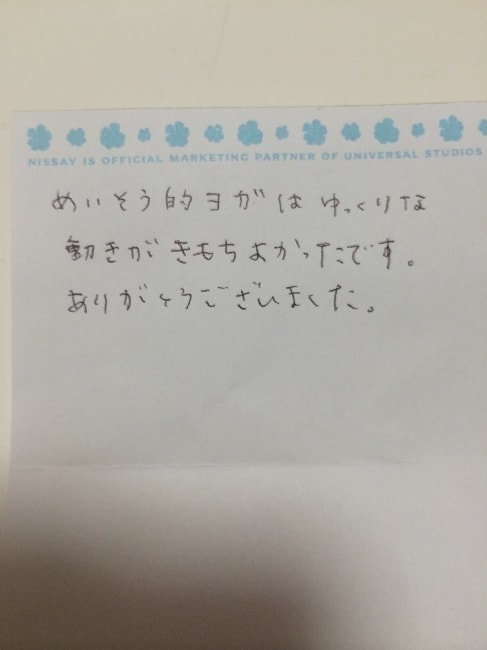 NISSAY IS OFFICIAL MARKETING PARTNER OF UNIVERSAL STUDIOS
めいそう的ヨガは ゆっくりな
動きが きもちよかったです。
ありがとうございました。